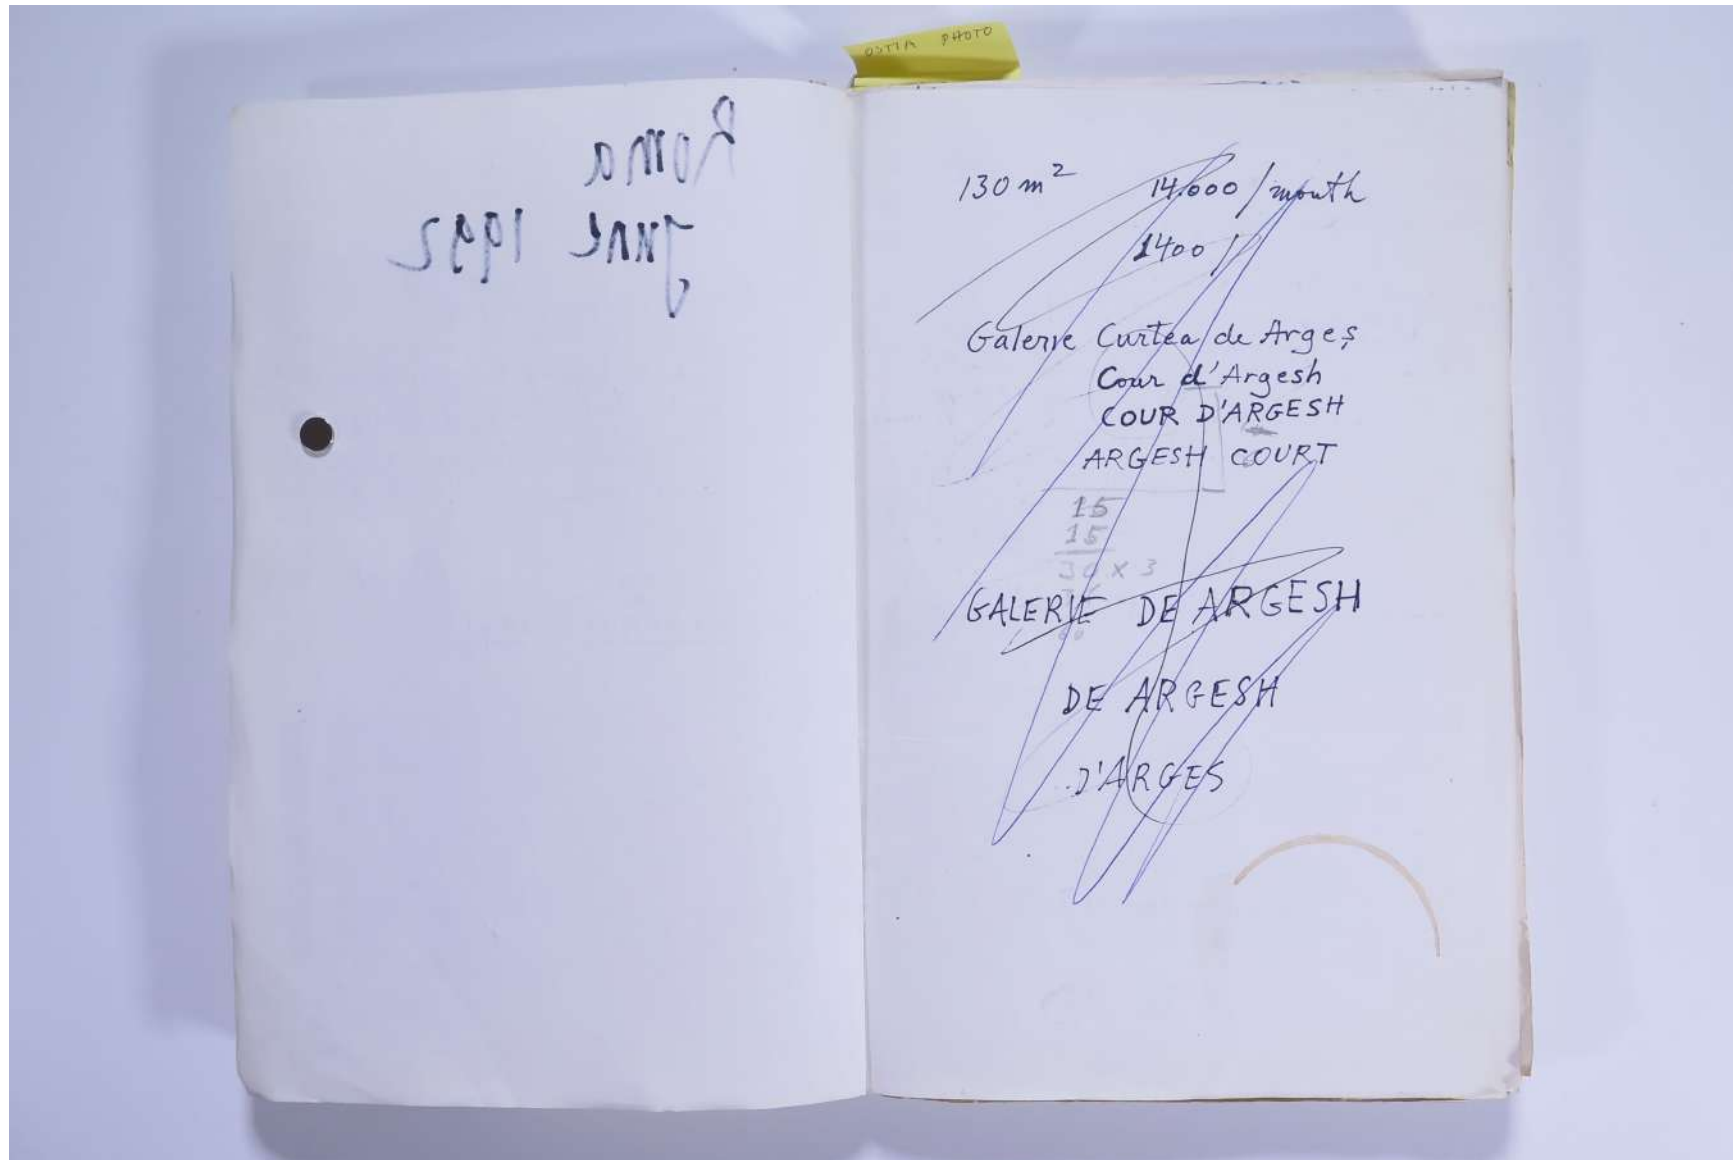 OSTIA PHOTO
Roma
June 1992
130 m² 14.000 / month
1400 /
Galerie Curtea de Argeș
Cour d'Argesh
COUR D'ARGESH
ARGESH COURT
15
15
30 x 3
GALERIE DE ARGESH
DE ARGESH
D'ARGES